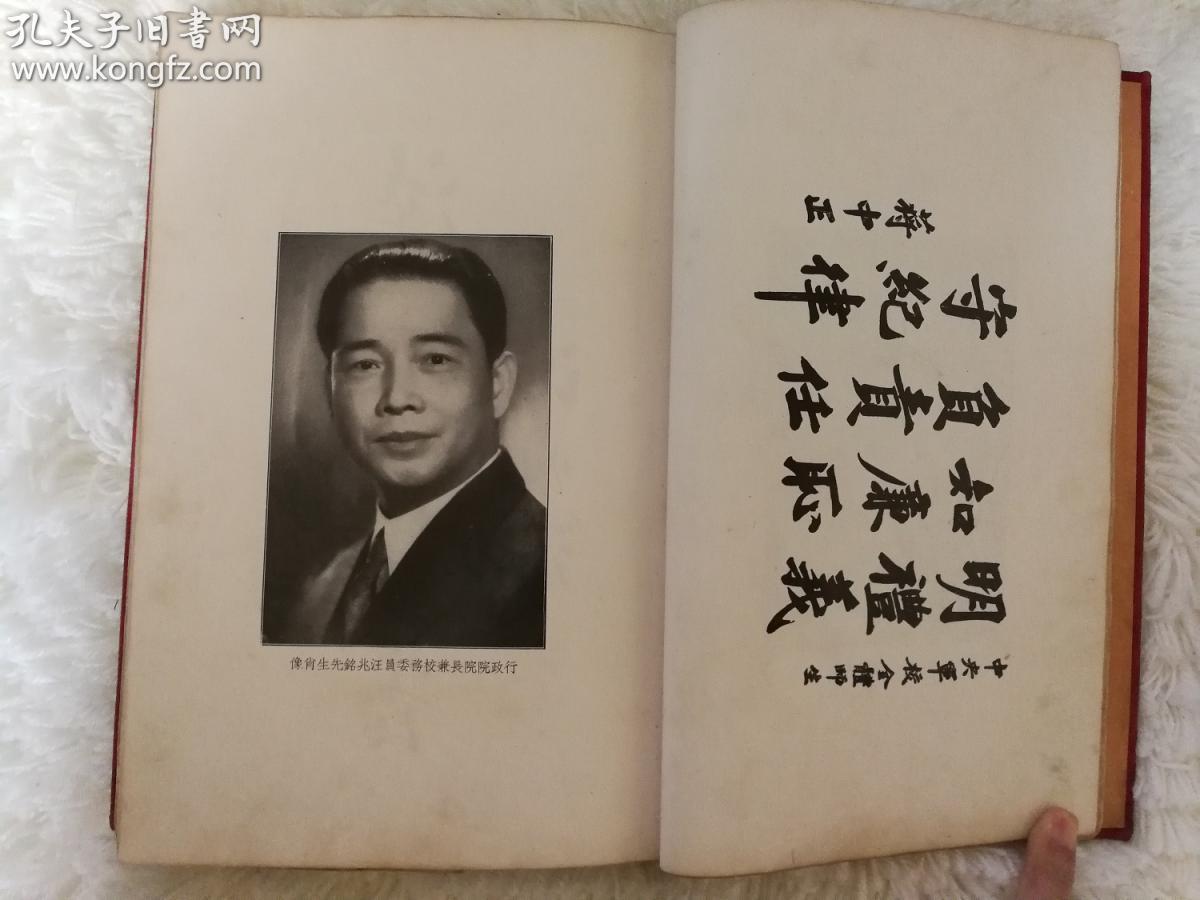 孔夫子旧书网
www.kongfz.com
中央軍校全體師生
明禮義
知廉恥
負責任
守紀律
蔣中正
行政院院長兼校務委員汪兆銘先生肖像